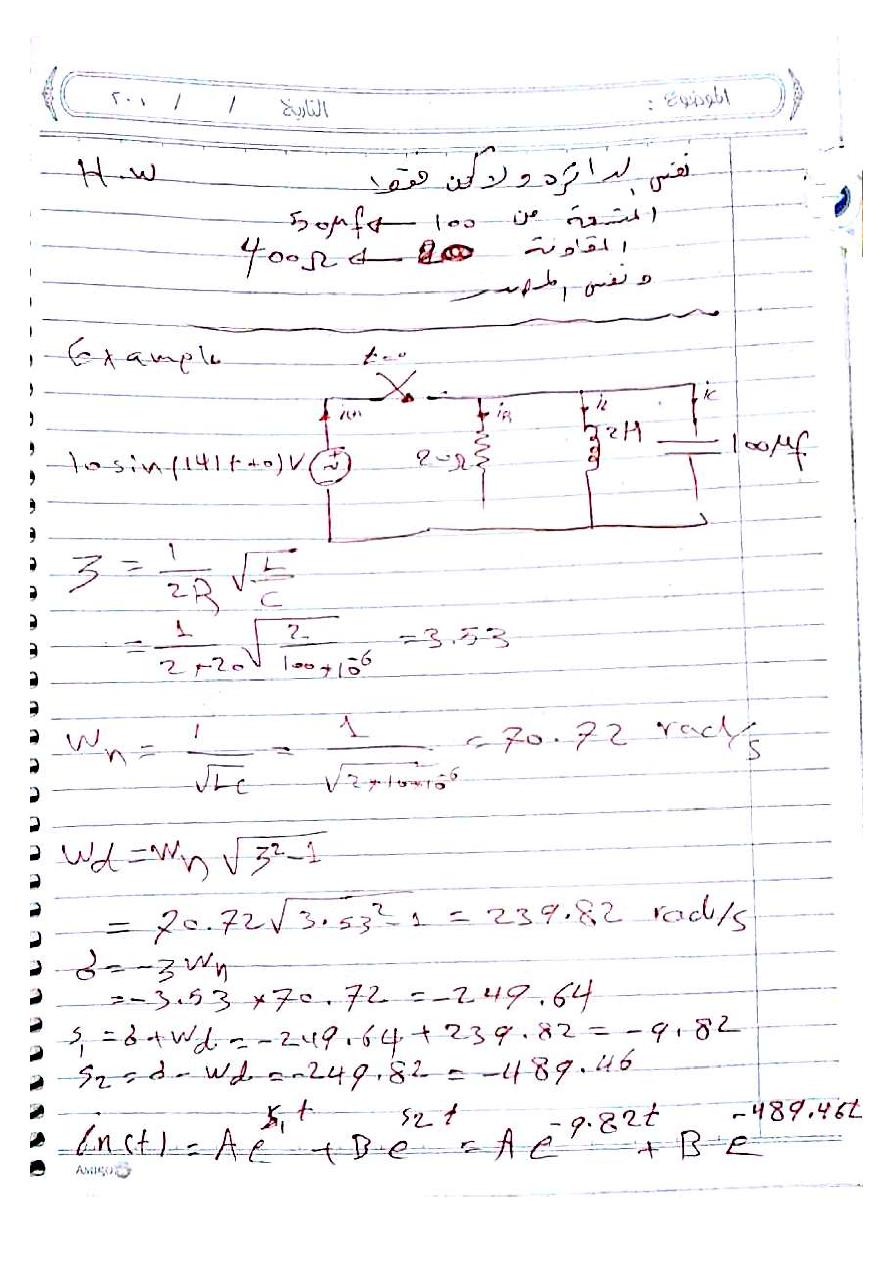 الموضوع :
التاريخ / / ٢٠١
H.W
نفس الدائرة ولاكن فقط
المتسعة من 100 → 50μf
المقاومة 20 → 400Ω
ونفس المصدر
Example
t=0
iin iR iL iC
10 sin(141t+0)V 20Ω 2H 100μf
ζ = 1/2R √L/C
= 1/2*20 √2/100*10⁻⁶ = 3.53
Wn = 1/√LC = 1/√2*100*10⁻⁶ = 70.72 rad/s
Wd = Wn √ζ²-1
= 70.72 √3.53²-1 = 239.82 rad/s
δ = -ζWn
= -3.53 * 70.72 = -249.64
S1 = δ+Wd = -249.64 + 239.82 = -9.82
S2 = δ-Wd = -249.82 = -489.46
in(t) = A e^S1t + B e^S2t = A e^-9.82t + B e^-489.46t
AMIGO